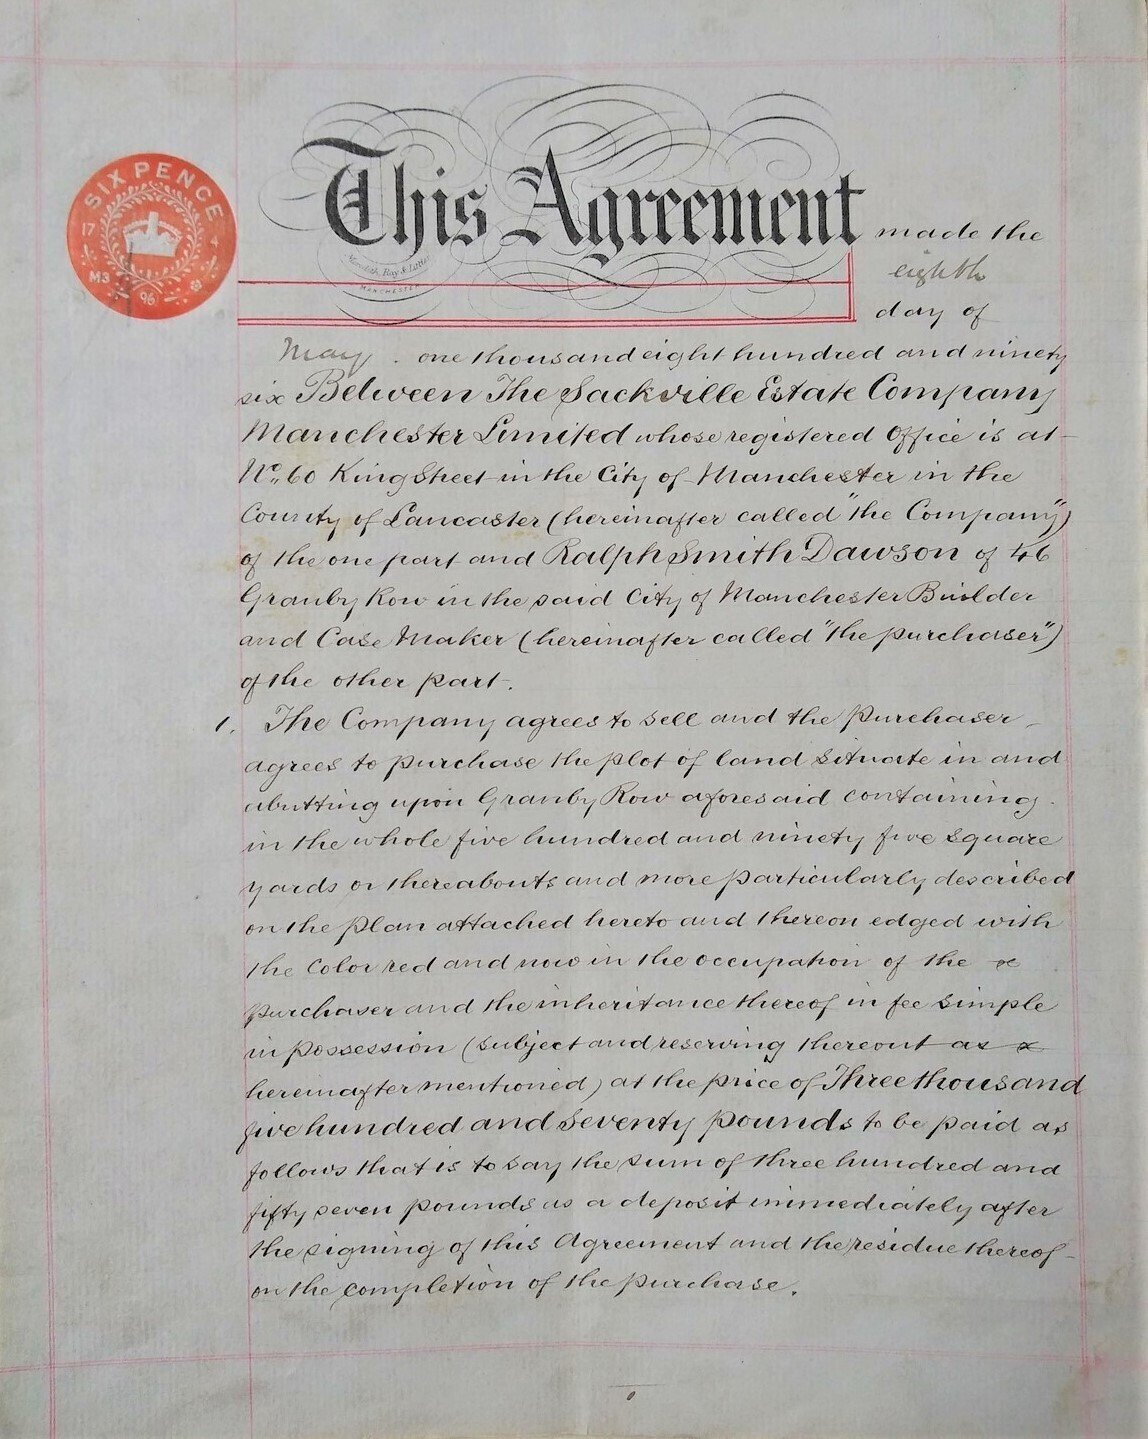 SIXPENCE
17
M3
96
This Agreement made the
MANCHESTER
eighth
day of
May. one thousand eight hundred and ninety
six Between The Sackville Estate Company
Manchester Limited whose registered Office is at
No. 60 King Street in the City of Manchester in the
County of Lancaster (hereinafter called "the Company")
of the one part and Ralph Smith Dawson of 46
Granby Row in the said City of Manchester Builder
and Case Maker (hereinafter called "the purchaser")
of the other part.
1. The Company agrees to sell and the Purchaser
agrees to purchase the plot of land situate in and
abutting upon Granby Row aforesaid containing
in the whole five hundred and ninety five square
yards or thereabouts and more particularly described
on the plan attached hereto and thereon edged with
the color red and now in the occupation of the
purchaser and the inheritance thereof in fee simple
in possession (subject and reserving thereout as
hereinafter mentioned) at the price of Three thousand
five hundred and seventy pounds to be paid as
follows that is to say the sum of three hundred and
fifty seven pounds as a deposit immediately after
the signing of this Agreement and the residue thereof
on the completion of the purchase.